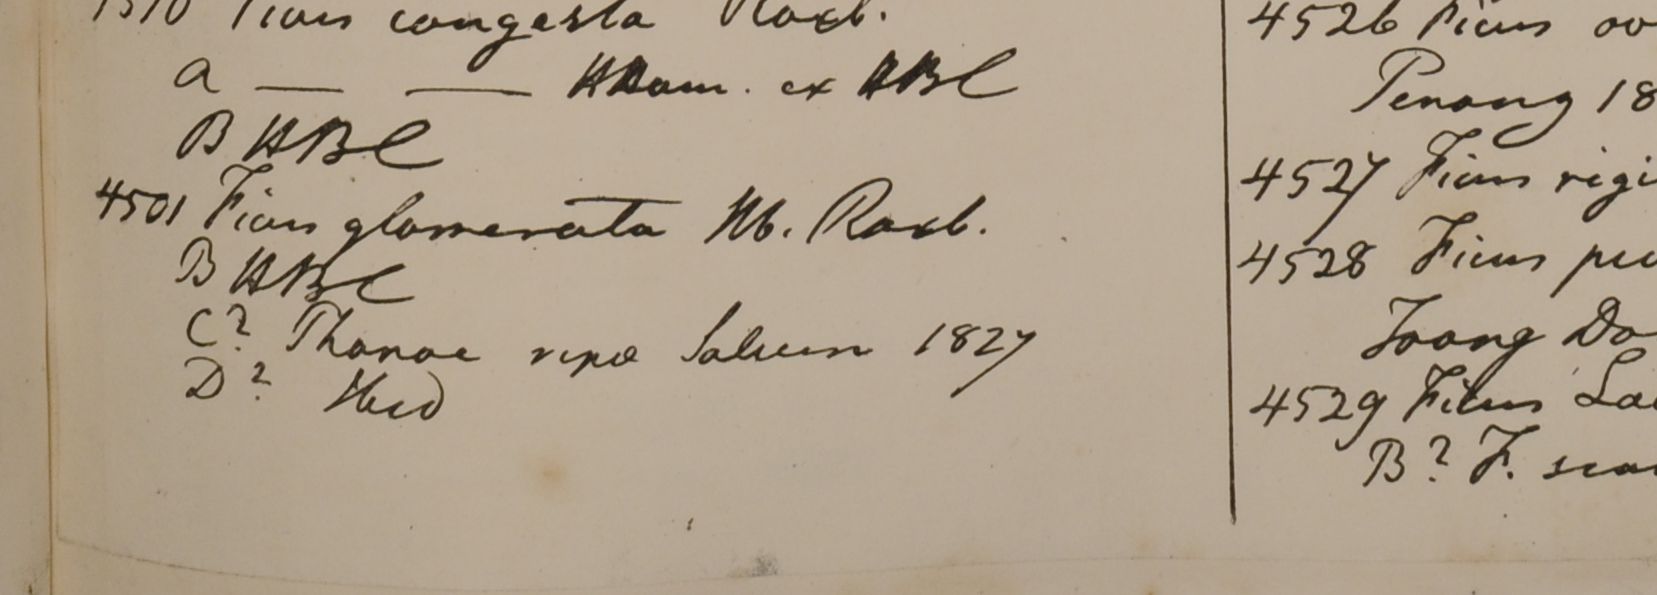 Ficus congesta Roxb.
a — — HHam. ex HBC
B HBC
4501 Ficus glomerata Hb. Roxb.
B HBC
C? Thanae ripa Saluen 1827
D? Ibid
4526 Ficus
Penang 18
4527 Ficus rigi
4528 Ficus
Toong Do
4529 Ficus
B? F.